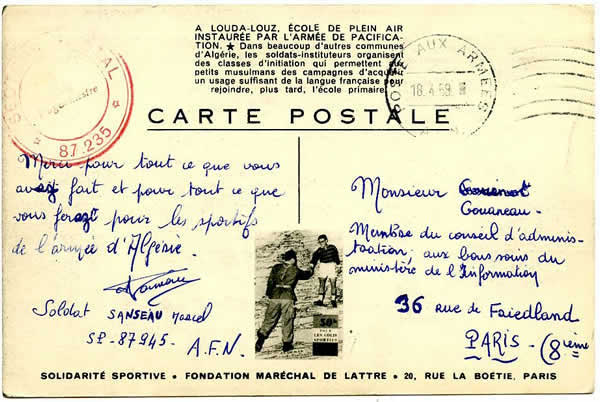 A LOUDA-LOUZ, ÉCOLE DE PLEIN AIR
INSTAURÉE PAR L'ARMÉE DE PACIFICA-
TION. ★ Dans beaucoup d'autres communes
d'Algérie, les soldats-instituteurs organisent
des classes d'initiation qui permettent aux
petits musulmans des campagnes d'acquérir
un usage suffisant de la langue française pour
rejoindre, plus tard, l'école primaire.
POSTE AUX ARMÉES
18.4.59
87.235
CARTE POSTALE
Merci pour tout ce que vous
avez fait et pour tout ce que
vous ferez pour les sportifs
de l'armée d'Algérie.
Soldat SANSEAU Marcel
SP-87945- A.F.N.
Monsieur
Gouaneau-
Membre du conseil d'adminis-
tration; aux bons soins du
ministère de l'Information
36 rue de Friedland
PARIS-(8ième
50F
POUR
LES COLIS
SPORTIFS
SOLIDARITÉ SPORTIVE • FONDATION MARÉCHAL DE LATTRE • 20, RUE LA BOËTIE, PARIS